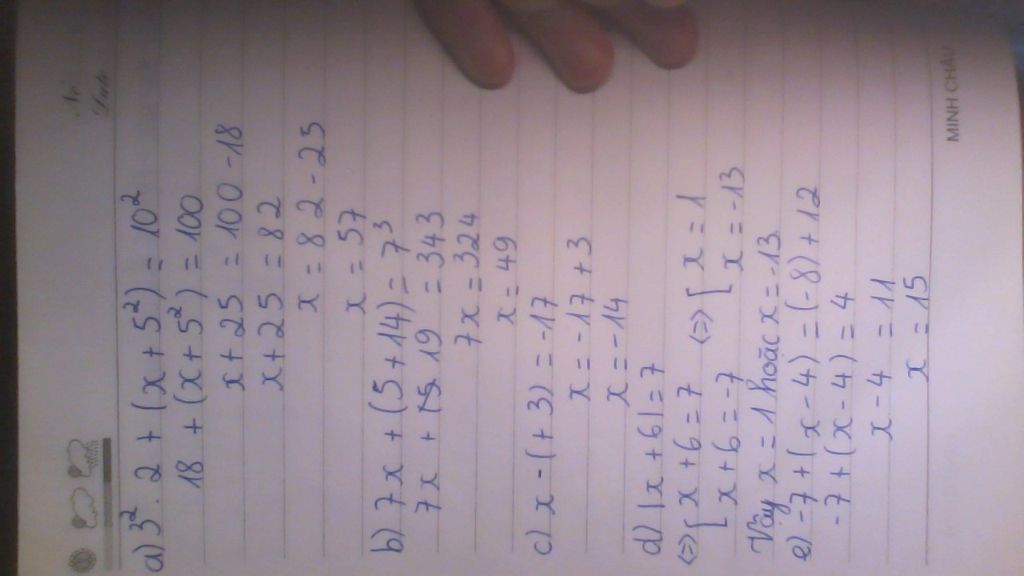 a) 3² . 2 + (x + 5²) = 10²
18 + (x + 5²) = 100
x + 25 = 100 - 18
x + 25 = 82
x = 82 - 25
x = 57
b) 7x + (5 + 14) = 7³
7x + 19 = 343
7x = 324
x = 49
c) x - (+3) = -17
x = -17 + 3
x = -14
d) |x + 6| = 7
<=> [x + 6 = 7 <=> [x = 1
[x + 6 = -7 [x = -13
Vậy x = 1 hoặc x = -13
e) -7 + (x - 4) = (-8) + 12
-7 + (x - 4) = 4
x - 4 = 11
x = 15
MINH CHÂU